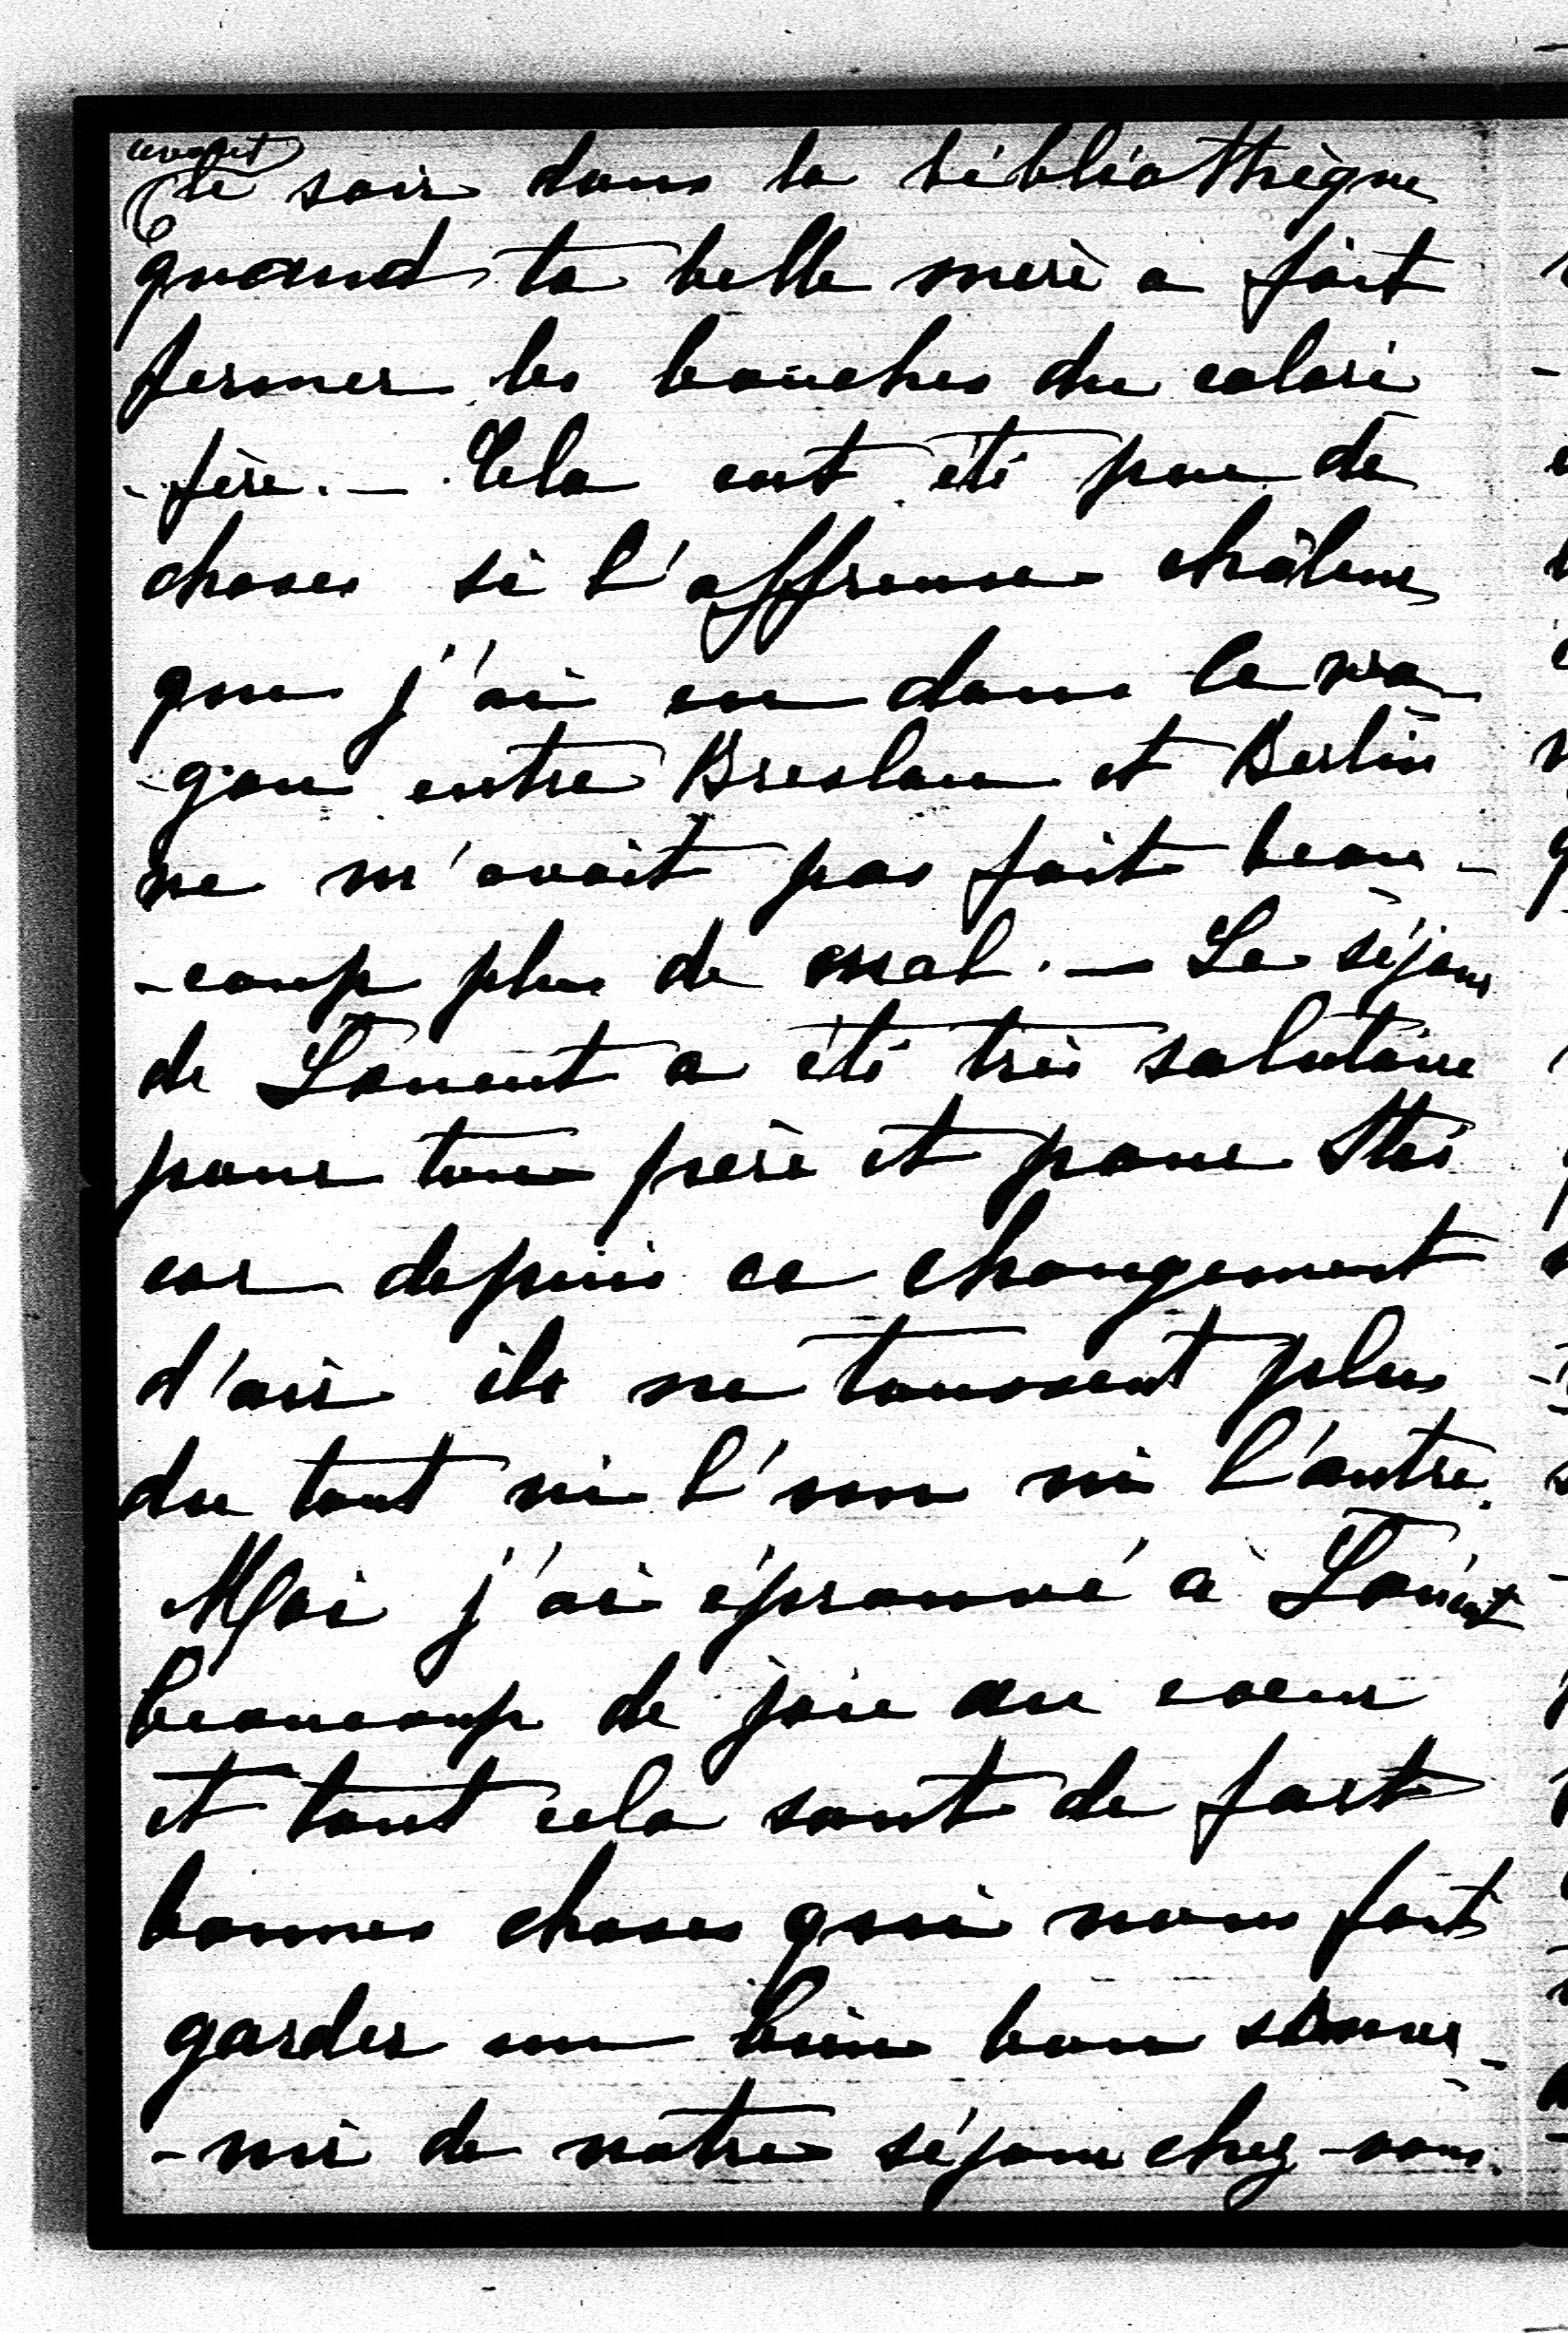 le soir dans la bibliothèque
quand ta belle merè a fait
fermer les bouches du calori
-fère. — Cela eut été peu de
choses si l'affreuse châleur
que j'ai eue dans le wa
-gon entre Breslau et Berlin
ne m'avait pas fait beau-
-coup plus de mal. — Le séjour
de Lancut a été très salutaire
pour ton perè et pour Stas
car depuis ce changement
d'air ils ne toussent plus
du tout ni l'un ni l'autre.
Moi j'ai éprouvé à Lancut
beaucoup de joie au coeur
et tout cela sont de fort
bonnes choses qui nous font
garder un bien bon souve-
-nir de notre séjour chez vous.